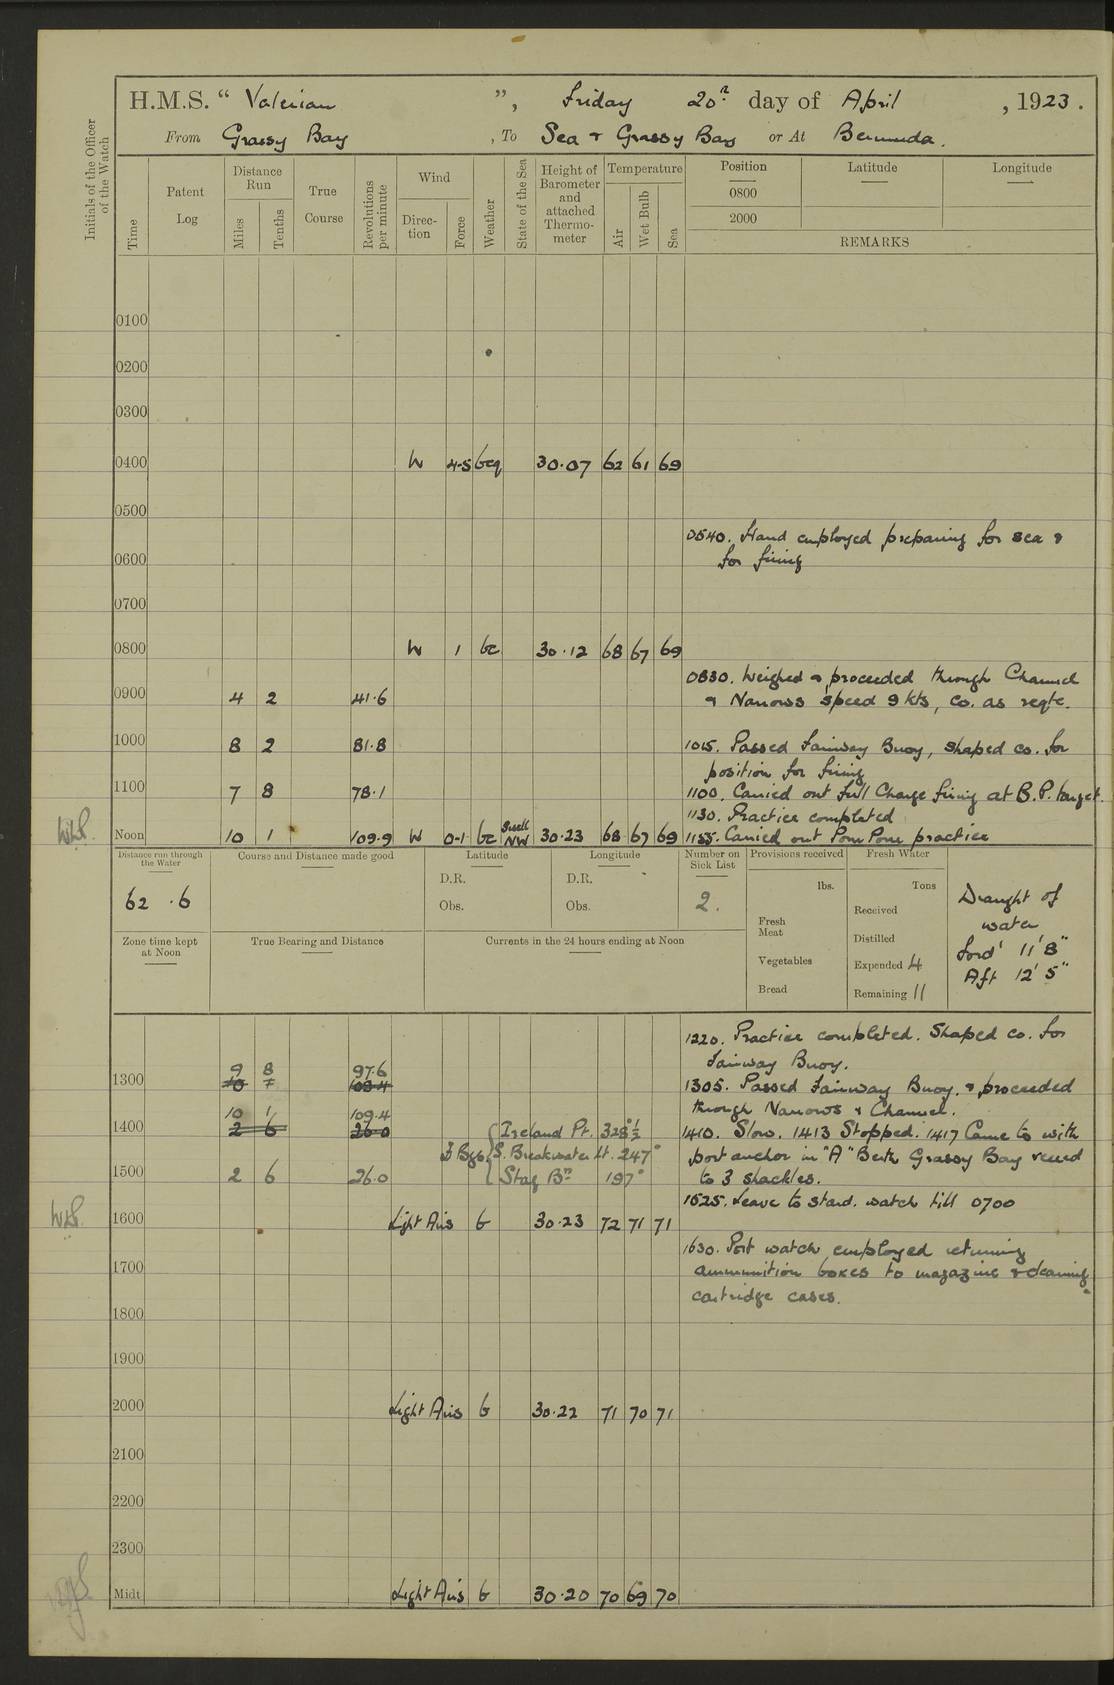 H.M.S. “ Valerian ”, Friday 20th day of April , 1923.
From Grassy Bay , To Sea & Grassy Bay or At Bermuda.
Initials of the Officer of the Watch
Time
Patent Log
Distance Run
Miles
Tenths
True Course
Revolutions per minute
Wind
Direc- tion
Force
Weather
State of the Sea
Height of Barometer and attached Thermo- meter
Temperature
Air
Wet Bulb
Sea
Position
0800
2000
Latitude
Longitude
REMARKS
0100
0200
0300
0400 W 4-5 bcq 30.07 62 61 69
0500
0540. Hand employed preparing for sea &
for firing
0600
0700
0800 W 1 bc 30.12 68 67 69
0830. Weighed & proceeded through Channel
0900 4 2 41.6 & Narrows speed 9 kts, co. as reqte.
1000 8 2 81.8 1015. Passed Fairway Buoy, shaped co. for
position for firing
1100 7 8 78.1 1100. Carried out full Charge firing at B.P. target.
1130. Practice completed
Noon 10 1 109.9 W 0-1 bc Swell NW 30.23 68 67 69 1155. Carried out Pom Pom practice
Distance run through the Water
62 .6
Course and Distance made good
Latitude
D.R.
Obs.
Longitude
D.R.
Obs.
Number on Sick List
2.
Provisions received
lbs.
Fresh Meat
Vegetables
Bread
Fresh Water
Tons
Received
Distilled
Expended 4
Remaining 11
Draught of
water
Ford' 11' 8"
Aft 12' 5"
Zone time kept at Noon
True Bearing and Distance
Currents in the 24 hours ending at Noon
1220. Practice completed. Shaped co. for
Fairway Buoy.
9 8 97.6
1300 10 7 1305. Passed Fairway Buoy. & proceeded
10 1 109.4 through Narrows & Channel.
1400 2 6 26.0 Ireland Pt. 328°½ 1410. Slow. 1413 Stopped. 1417 Came to with
3 Bgs. S. Breakwater Lt. 247° port anchor in "A" Berth Grassy Bay veered
1500 2 6 26.0 Stag Bn 197° to 3 shackles.
1525. Leave to starbd. watch till 0700
1600 Light Airs b 30.23 72 71 71
1630. Port watch employed returning
1700 ammunition boxes to magazine & cleaning
cartridge cases.
1800
1900
2000 Light Airs b 30.22 71 70 71
2100
2200
2300
Midt. Light Airs b 30.20 70 69 70